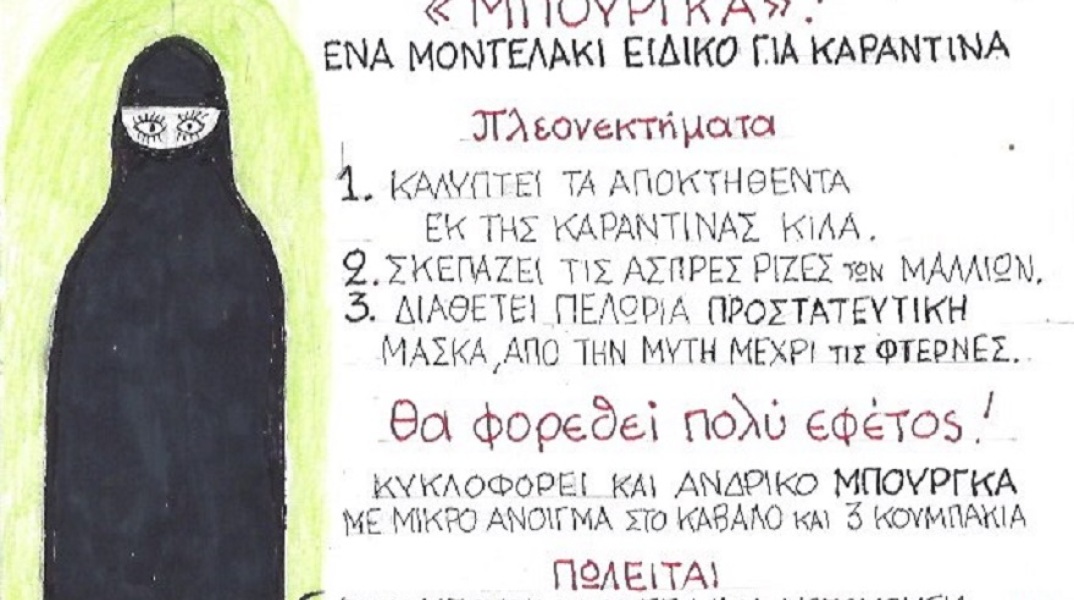 «ΜΠΟΥΡΓΚΑ»:
ΕΝΑ ΜΟΝΤΕΛΑΚΙ ΕΙΔΙΚΟ ΓΙΑ ΚΑΡΑΝΤΙΝΑ
Πλεονεκτήματα
1. ΚΑΛΥΠΤΕΙ ΤΑ ΑΠΟΚΤΗΘΕΝΤΑ
ΕΚ ΤΗΣ ΚΑΡΑΝΤΙΝΑΣ ΚΙΛΑ.
2. ΣΚΕΠΑΖΕΙ ΤΙΣ ΑΣΠΡΕΣ ΡΙΖΕΣ των ΜΑΛΛΙΩΝ.
3. ΔΙΑΘΕΤΕΙ ΠΕΛΩΡΙΑ ΠΡΟΣΤΑΤΕΥΤΙΚΗ
ΜΑΣΚΑ, ΑΠΟ ΤΗΝ ΜΥΤΗ ΜΕΧΡΙ τις ΦΤΕΡΝΕΣ.
θα φορεθεί πολύ εφέτος!
ΚΥΚΛΟΦΟΡΕΙ ΚΑΙ ΑΝΔΡΙΚΟ ΜΠΟΥΡΓΚΑ
ΜΕ ΜΙΚΡΟ ΑΝΟΙΓΜΑ ΣΤΟ ΚΑΒΑΛΟ και 3 ΚΟΥΜΠΑΚΙΑ
ΠΩΛΕΙΤΑΙ